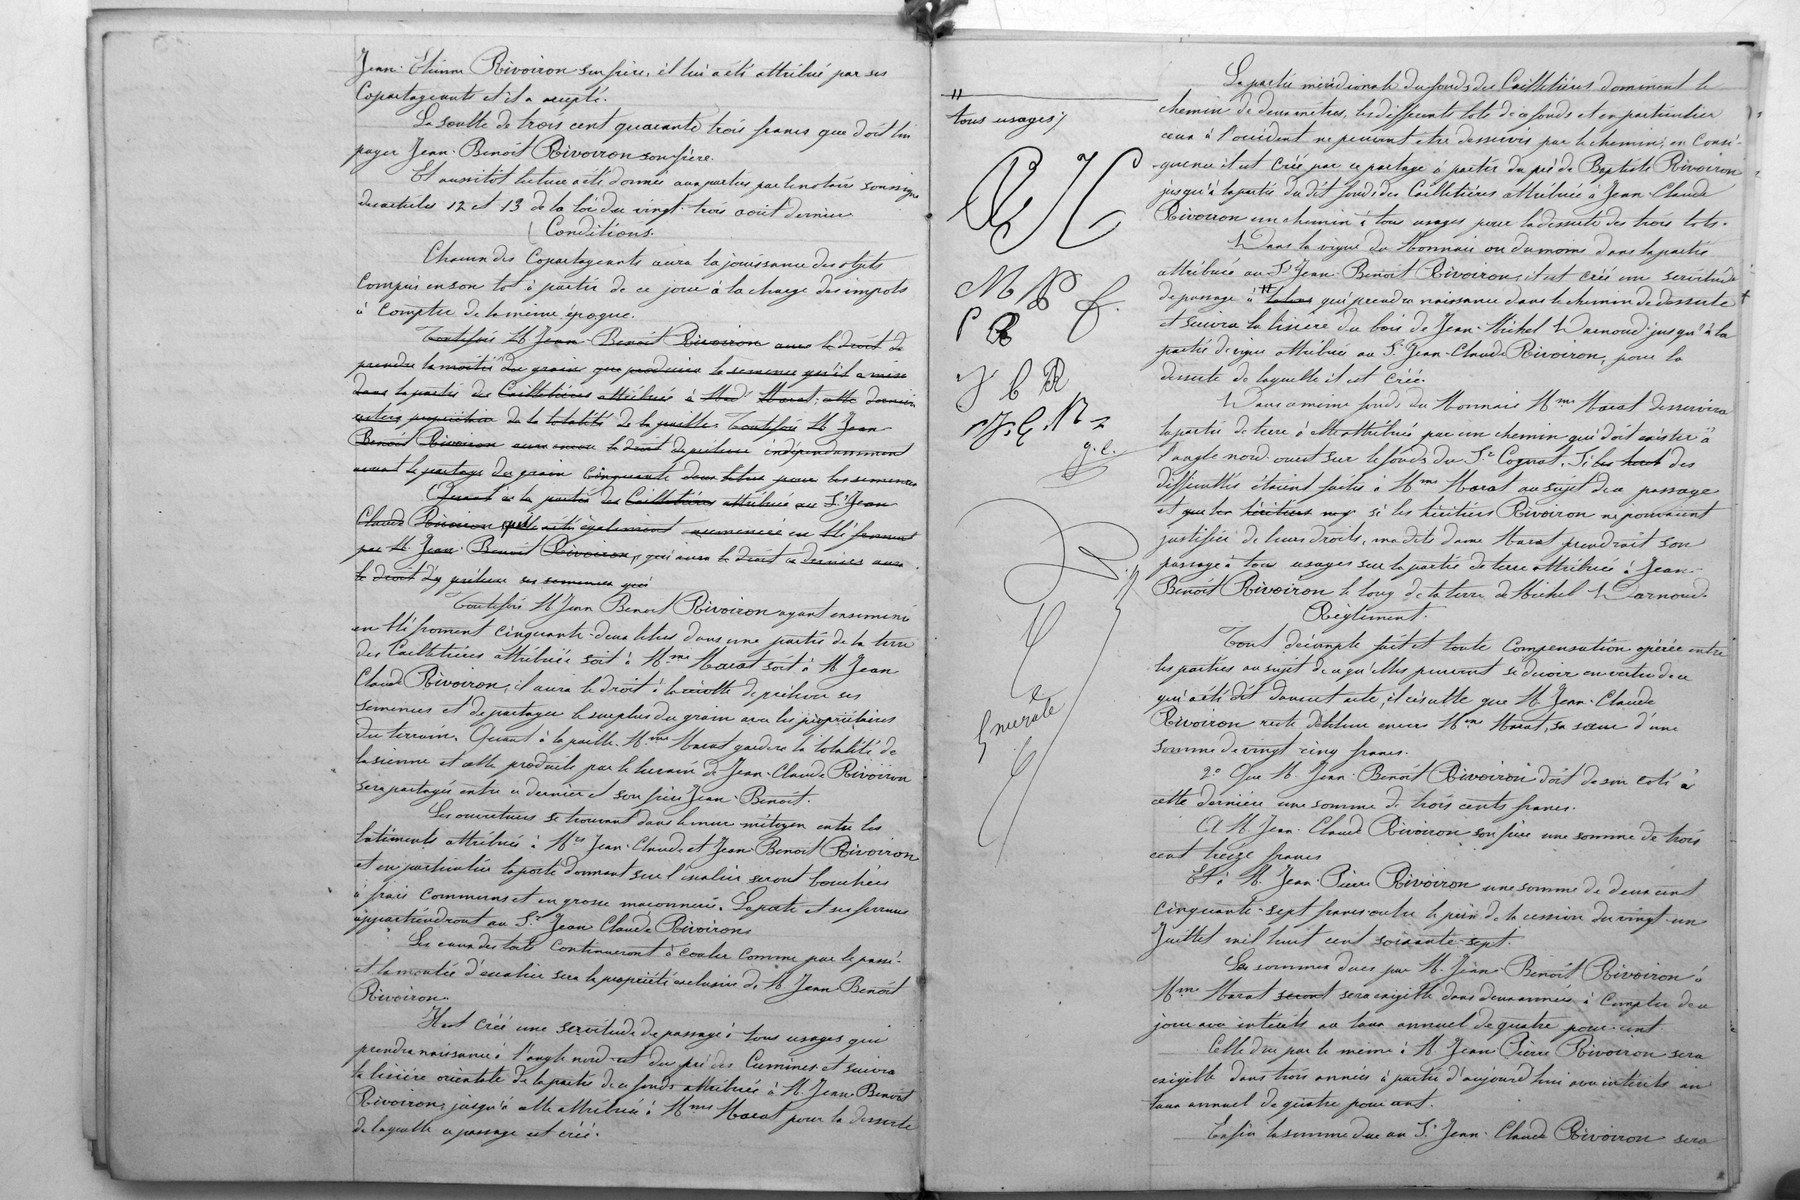 Jean-Etienne Rivoiron son frère, il lui a été attribué par ses
Copartageants et il a accepté.
La soulte de trois cent quarante trois francs que doit lui
payer Jean-Benoit Rivoiron son frère.
Et aussitôt lecture a été donnée aux parties par le notaire soussigné
des articles 12 et 13 de la loi du vingt-trois août dernier
Conditions.
Chacun des Copartageants aura la jouissance des objets
Compris en son lot à partir de ce jour à la charge des impots
à Compter de la même époque.
Toutefois M Jean-Benoit Rivoiron aura le droit de
prendre la moitié du grain que produira la semence qu'il a mise
dans la partie des Cailletières attribuée à Mad Marat cette dernière
restera propriétaire de la totalité de la paille. Toutefois M Jean
Benoit Rivoiron aura encore le droit de prélever indépendamment
avant le partage du grain cinquante deux litres pour les semences
Quant à la partie des Cailletières attribuée au Sr Jean
Claude Rivoiron qui a été également ensemencée en blé froment
par M. Jean-Benoit Rivoiron, qui aura le droit ce dernier aura
le droit d'y prélever ses semences qui
Toutefois M Jean Benoit Rivoiron ayant ensemencé
en blé froment cinquante-deux litres dans une partie de la terre
des Cailletières attribuée soit à Mme Marat soit à M Jean
Claude Rivoiron, il aura le droit à la récolte de prélever ses
semences et de partager le surplus du grain avec les propriétaires
du terrain. Quant à la paille Mme Marat gardera la totalité de
la sienne et celle produite par le terrain de Jean-Claude Rivoiron
sera partagée entre ce dernier et son frère Jean-Benoit.
Les ouvertures se trouvant dans le mur mitoyen entre les
batiments attribués à Mrs Jean-Claude et Jean-Benoit Rivoiron
et en particulier la porte donnant sur l'escalier seront bouchées
à frais communs et en grosse maconnerie. La porte et ses ferrures
appartiendront au Sr Jean Claude Rivoiron.
Les eaux des toits Continueront à couler comme par le passé
et la montée d'escalier sera la propriété exclusive de M Jean Benoit
Rivoiron.
Il est créé une servitude de passage à tous usages qui
prendra naissance à l'angle nord-est du pré des Cumines et suivra
la lisière orientale de la partie de ce fonds attribuée à M. Jean-Benoit
Rivoiron, jusqu'à celle attribuée à Mme Marat pour la desserte
de laquelle ce passage est créé.
tous usages/
M
J B R
J. C. R
g. l.
La partie méridionale du fonds des Cailletières dominant le
chemin de deux mètres, les différents lots de ce fonds et en particulier
ceux à l'occident ne peuvent etre desservis par le chemin; en Consé-
quence il est créé par ce partage à partir du pré de Baptiste Rivoiron
jusqu'à la partie du dit fonds des Cailletières attribuée à Jean-Claude
Rivoiron un chemin à tous usages pour la desserte des trois lots.
Dans la vigne du Monnais ou du moins dans la partie
attribuée au Sr Jean-Benoit Rivoiron, il est créé une servitude
de passage à qui prendra naissance dans le chemin de desserte
et suivra la lisière du bois de Jean-Michel Darnoud jusqu'à la
partie de vigne attribuée au Sr Jean-Claude Rivoiron, pour la
desserte de laquelle il est créé.
Dans ce même fonds du Monnais Mme Marat desservira
la partie de terre à elle attribuée par un chemin qui doit exister à
l'angle nord-ouest sur le fonds du Sr Cognat. Si des
difficultés étaient faites à Mme Marat au sujet de ce passage
et que les héritiers si les héritiers Rivoiron ne pouvaient
justifier de leurs droits, madite dame Marat prendrait son
passage à tous usages sur la partie de terre attribuée à Jean-
Benoit Rivoiron le long de la terre de Michel Darnoud.
Règlement.
Tout décompte fait et toute Compensation opérée entre
les parties au sujet de ce qu'elles peuvent se devoir en vertu de ce
qui a été dit devant acte, il résulte que M. Jean-Claude
Rivoiron reste débiteur envers Mme Marat, sa sœur d'une
somme de vingt-cinq francs.
2° Que M. Jean-Benoit Rivoiron doit de son coté à
cette dernière une somme de trois cents francs.
A M. Jean-Claude Rivoiron son frère une somme de trois
cent treize francs
Et à M. Jean Pierre Rivoiron une somme de deux cent
cinquante-sept francs outre le prix de la cession du vingt-un
Juillet mil huit cent soixante-sept.
La somme due par M. Jean-Benoit Rivoiron à
Mme Marat seront sera exigible dans deux années à Compter de ce
jour avec intérêts au taux annuel de quatre pour cent
Celle due par le même à M Jean Pierre Rivoiron sera
exigible dans trois années à partir d'aujourd'hui avec intérêts au
taux annuel de quatre pour cent.
Enfin la somme due au Sr Jean-Claude Rivoiron sera